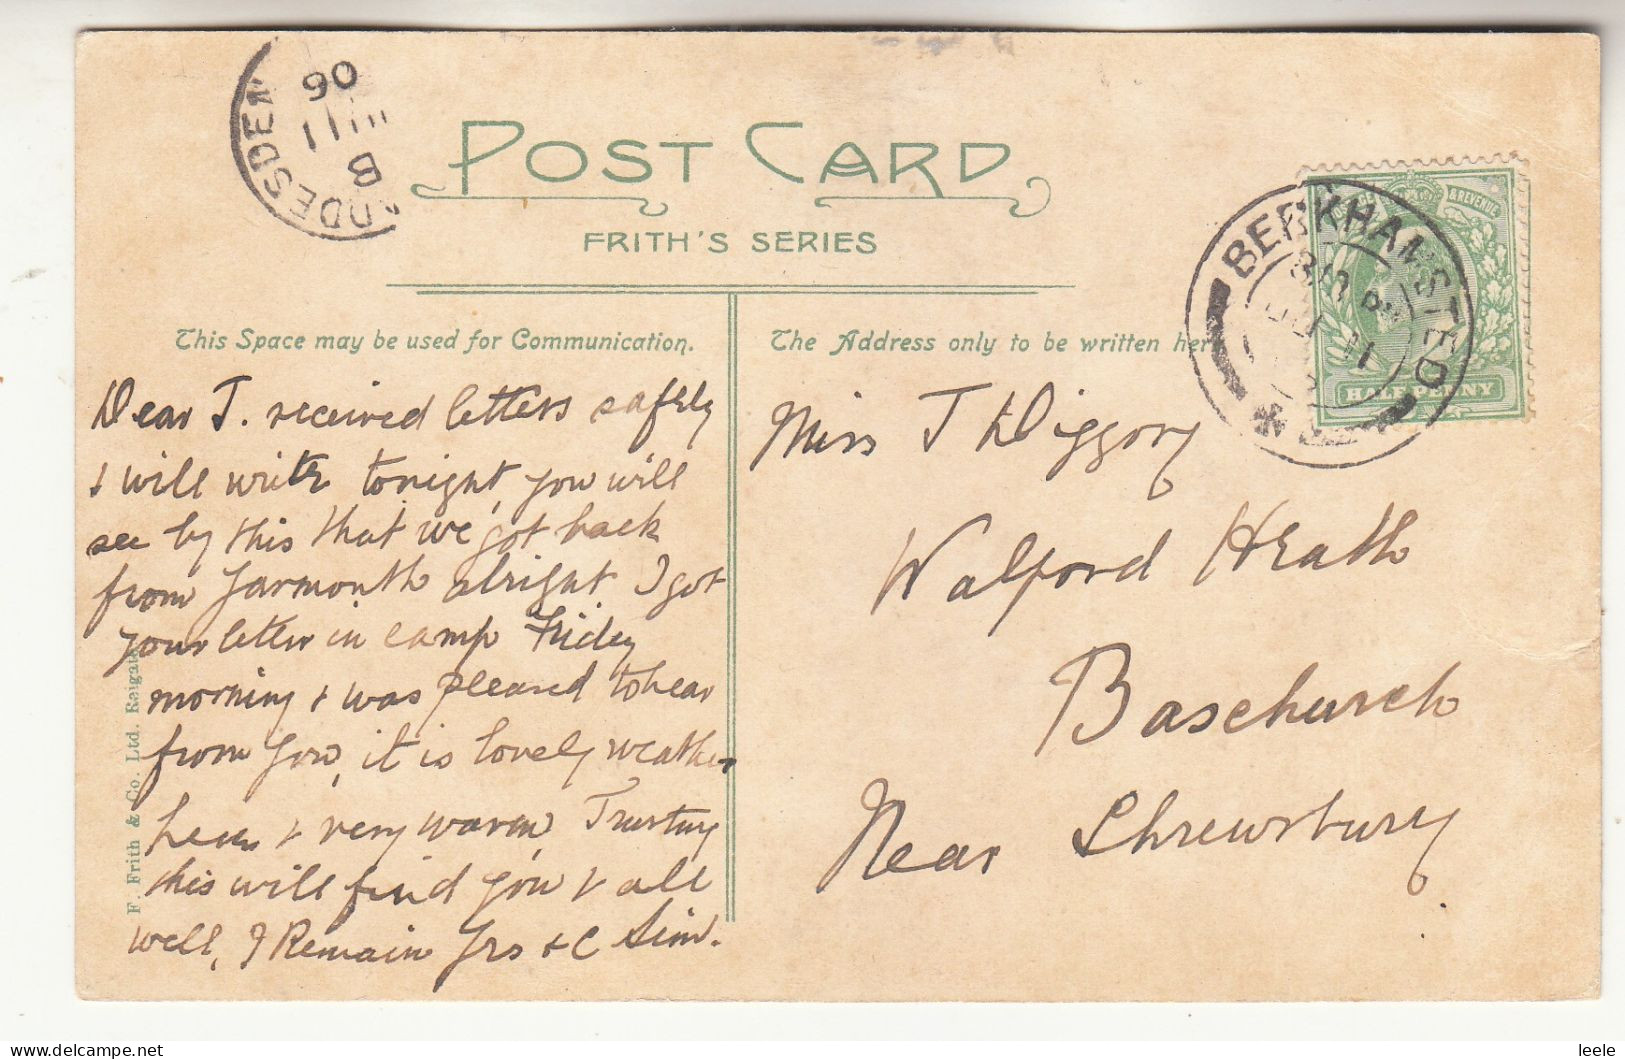 06
11
B
DDESDEN
POST CARD
FRITH'S SERIES
This Space may be used for Communication.
The Address only to be written her
BERKHAMSTED
11
& REVENUE
HALFPENNY
Dear J. received letters safely
& will write tonight, you will
see by this that we got back
from Yarmouth alright I got
your letter in camp Friday
morning & was pleased to hear
from you, it is lovely weather
here & very warm, Trusting
this will find you & all
well, I Remain Yrs &C Sim.
F. Frith & Co. Ltd. Reigate
Miss J Diggory
Walford Heath
Baschurch
Near Shrewsbury
leele
delcampe.net